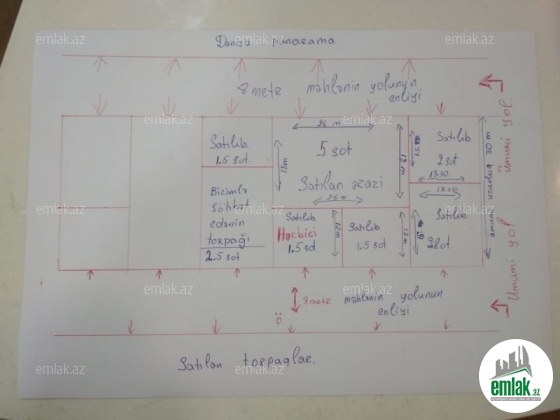 Dənizə panarama
8 metr məhlənin yolunun
enliyi
Satılıb
1.5 sot
Bizimlə
söhbət
edənin
torpağı
2.5 sot
26 m
5 sot
Satılan ərazi
26 m
Satılıb
2 sot
13.30
Satılıb
2 sot
Satılıb
Hərbiçi
1.5 sot
12 m
Satılıb
1.5 sot
12 m
ümumi uzunluq 30 m
Ümumi yol
Ümumi yol
8 metr məhlənin yolunun
enliyi
Satılan torpaqlar.
emlak.az
emlak.az
emlak.az
emlak.az
emlak.az
emlak.az
emlak.az
emlak.az
emlak.az
emlak.az